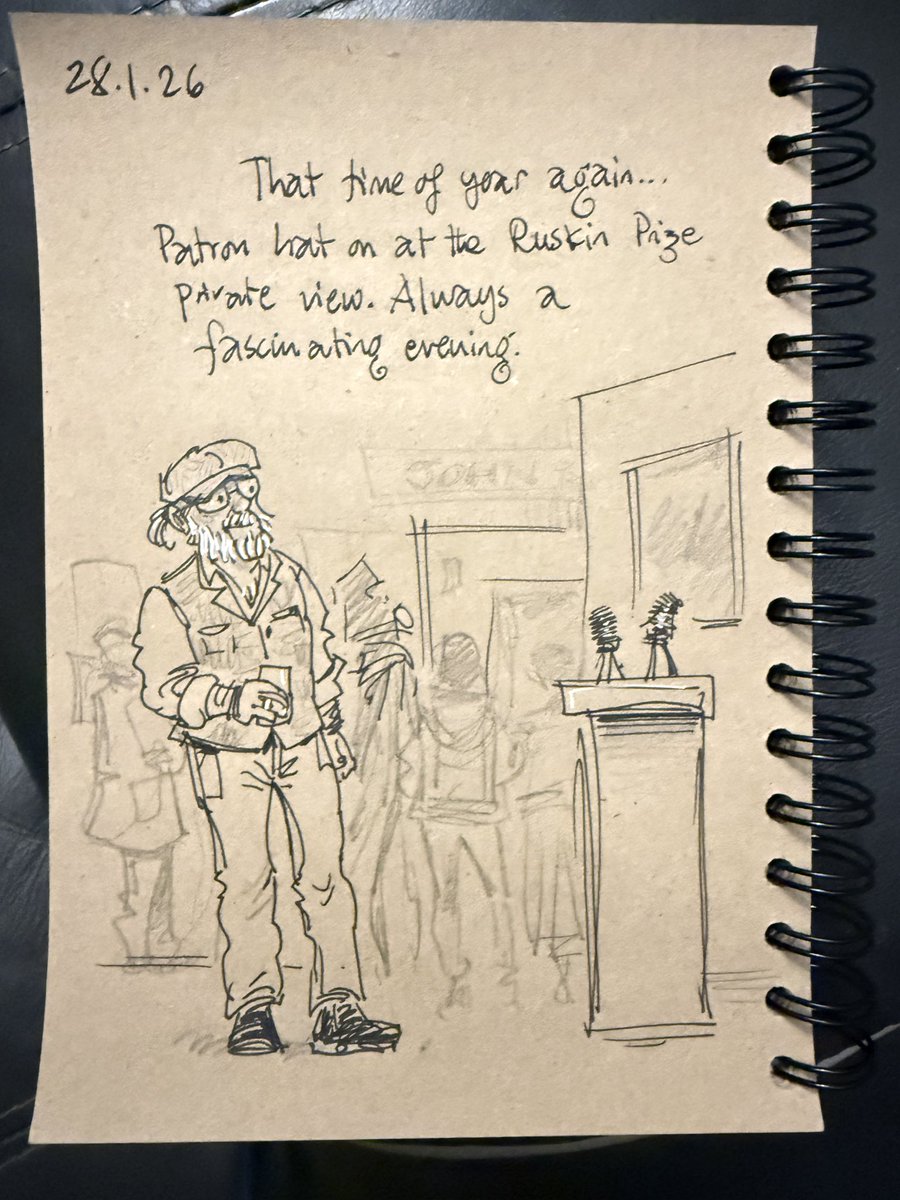 28.1.26
That time of year again...
Patron hat on at the Ruskin Prize
private view. Always a
fascinating evening.
JOHN